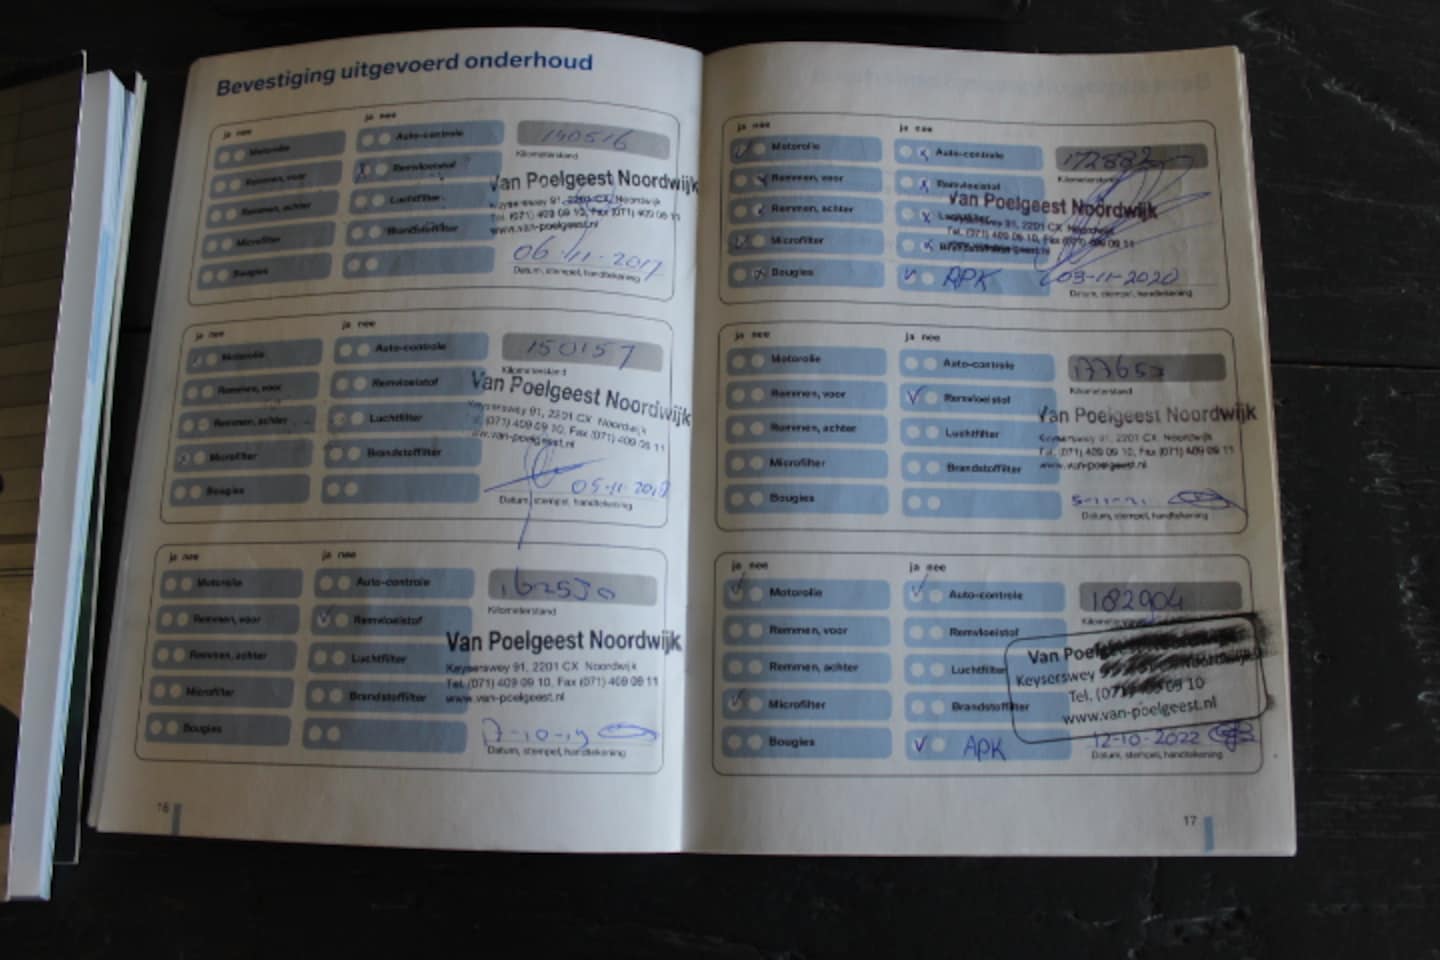 Bevestiging uitgevoerd onderhoud
ja nee
ja nee
Motorolie
Auto-controle
140516
Kilometerstand
Remmen, voor
Remvloeistof
Remmen, achter
Luchtfilter
Microfilter
Brandstoffilter
Bougies
Van Poelgeest Noordwijk
Keysersweg 91, 2201 CX Noordwijk
Tel. (071) 409 09 10, Fax (071) 409 09 11
www.van-poelgeest.nl
06-11-2017
Datum, stempel, handtekening
ja nee
ja nee
Motorolie
Auto-controle
150157
Kilometerstand
Remmen, voor
Remvloeistof
Remmen, achter
Luchtfilter
Microfilter
Brandstoffilter
Bougies
Van Poelgeest Noordwijk
Keysersweg 91, 2201 CX Noordwijk
(071) 409 09 10, Fax (071) 409 09 11
www.van-poelgeest.nl
05-11-2018
Datum, stempel, handtekening
ja nee
ja nee
Motorolie
Auto-controle
162530
Kilometerstand
Remmen, voor
Remvloeistof
Remmen, achter
Luchtfilter
Microfilter
Brandstoffilter
Bougies
Van Poelgeest Noordwijk
Keysersweg 91, 2201 CX Noordwijk
Tel. (071) 409 09 10, Fax (071) 409 09 11
www.van-poelgeest.nl
17-10-19
Datum, stempel, handtekening
16
ja nee
ja nee
Motorolie
Auto-controle
Kilometerstand
Remmen, voor
Remvloeistof
Remmen, achter
Luchtfilter
Microfilter
Brandstoffilter
Bougies
APK
Van Poelgeest Noordwijk
Keysersweg 91, 2201 CX Noordwijk
Tel. (071) 409 09 10, Fax (071) 409 09 11
03-11-2020
Datum, stempel, handtekening
ja nee
ja nee
Motorolie
Auto-controle
Kilometerstand
Remmen, voor
Remvloeistof
Remmen, achter
Luchtfilter
Microfilter
Brandstoffilter
Bougies
Van Poelgeest Noordwijk
Keysersweg 91, 2201 CX Noordwijk
Tel. (071) 409 09 10, Fax (071) 409 09 11
www.van-poelgeest.nl
Datum, stempel, handtekening
ja nee
ja nee
Motorolie
Auto-controle
182904
Kilometerstand
Remmen, voor
Remvloeistof
Remmen, achter
Luchtfilter
Microfilter
Brandstoffilter
Bougies
APK
Van Noordwijk
Keysersweg
Tel. 09 10
www.van-poelgeest.nl
12-10-2022
Datum, stempel, handtekening
17